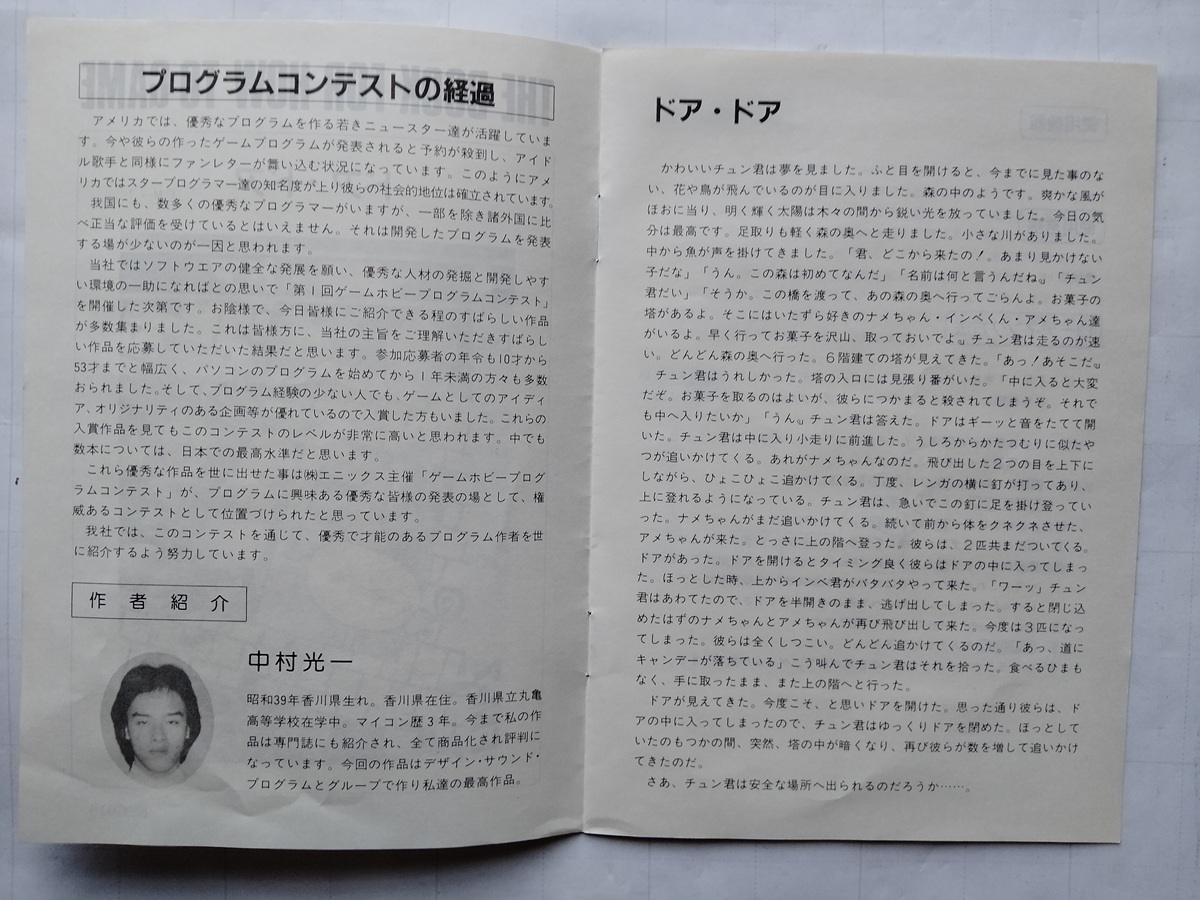 プログラムコンテストの経過
アメリカでは、優秀なプログラムを作る若きニュースター達が活躍していま
す。今や彼らの作ったゲームプログラムが発表されると予約が殺到し、アイド
ル歌手と同様にファンレターが舞い込む状況になっています。このようにアメ
リカではスタープログラマー達の知名度が上り彼らの社会的地位は確立されています。
我国にも、数多くの優秀なプログラマーがいますが、一部を除き諸外国に比
べ正当な評価を受けているとはいえません。それは開発したプログラムを発表
する場が少ないのが一因と思われます。
当社ではソフトウエアの健全な発展を願い、優秀な人材の発掘と開発しやす
い環境の一助になればとの思いで「第1回ゲームホビープログラムコンテスト」
を開催した次第です。お陰様で、今日皆様にご紹介できる程のすばらしい作品
が多数集まりました。これは皆様方に、当社の主旨をご理解いただきすばらし
い作品を応募していただいた結果だと思います。参加応募者の年令も10才から
53才までと幅広く、パソコンのプログラムを始めてから1年未満の方々も多数
おられました。そして、プログラム経験の少ない人でも、ゲームとしてのアイディ
ア、オリジナリティのある企画等が優れているので入賞した方もいました。これらの
入賞作品を見てもこのコンテストのレベルが非常に高いと思われます。中でも
数本については、日本での最高水準だと思います。
これら優秀な作品を世に出せた事は㈱エニックス主催「ゲームホビープログ
ラムコンテスト」が、プログラムに興味ある優秀な皆様の発表の場として、権
威あるコンテストとして位置づけられたと思っています。
我社では、このコンテストを通じて、優秀で才能のあるプログラム作者を世
に紹介するよう努力しています。
作者紹介
中村光一
昭和39年香川県生れ。香川県在住。香川県立丸亀
高等学校在学中。マイコン歴3年。今まで私の作
品は専門誌にも紹介され、全て商品化され評判に
なっています。今回の作品はデザイン・サウンド・
プログラムとグループで作り私達の最高作品。
ドア・ドア
かわいいチュン君は夢を見ました。ふと目を開けると、今までに見た事のな
い、花や鳥が飛んでいるのが目に入りました。森の中のようです。爽かな風が
ほおに当り、明く輝く太陽は木々の間から鋭い光を放っていました。今日の気
分は最高です。足取りも軽く森の奥へと走りました。小さな川がありました。
中から魚が声を掛けてきました。「君、どこから来たの！。あまり見かけない
子だな」「うん。この森は初めてなんだ」「名前は何と言うんだね。」「チュン
君だい」「そうか。この橋を渡って、あの森の奥へ行ってごらんよ。お菓子の
塔があるよ。そこにはいたずら好きのナメちゃん・インベくん・アメちゃん達
がいるよ。早く行ってお菓子を沢山、取っておいでよ。」チュン君は走るのが速
い。どんどん森の奥へ行った。6階建ての塔が見えてきた。「あっ！あそこだ。」
チュン君はうれしかった。塔の入口には見張り番がいた。「中に入ると大変
だぞ。お菓子を取るのはよいが、彼らにつかまると殺されてしまうぞ。それで
も中へ入りたいか」「うん。」チュン君は答えた。ドアはギーッと音をたてて開
いた。チュン君は中に入り小走りに前進した。うしろからかたつむりに似たや
つが追いかけてくる。あれがナメちゃんなのだ。飛び出した2つの目を上下に
しながら、ひょこひょこ追かけてくる。丁度、レンガの横に釘が打ってあり、
上に登れるようになっている。チュン君は、急いでこの釘に足を掛け登ってい
った。ナメちゃんがまだ追いかけてくる。続いて前から体をクネクネさせた、
アメちゃんが来た。とっさに上の階へ登った。彼らは、2匹共まだついてくる。
ドアがあった。ドアを開けるとタイミング良く彼らはドアの中に入ってしまっ
た。ほっとした時、上からインベ君がバタバタやって来た。「ワーッ」チュン
君はあわてたので、ドアを半開きのまま、逃げ出してしまった。すると閉じ込
めたはずのナメちゃんとアメちゃんが再び飛び出して来た。今度は3匹になっ
てしまった。彼らは全くしつこい。どんどん追かけてくるのだ。「あっ、道に
キャンデーが落ちている」こう叫んでチュン君はそれを拾った。食べるひまも
なく、手に取ったまま、また上の階へと行った。
ドアが見えてきた。今度こそ、と思いドアを開けた。思った通り彼らは、ド
アの中に入ってしまったので、チュン君はゆっくりドアを閉めた。ほっとして
いたのもつかの間、突然、塔の中が暗くなり、再び彼らが数を増して追いかけ
てきたのだ。
さあ、チュン君は安全な場所へ出られるのだろうか……。